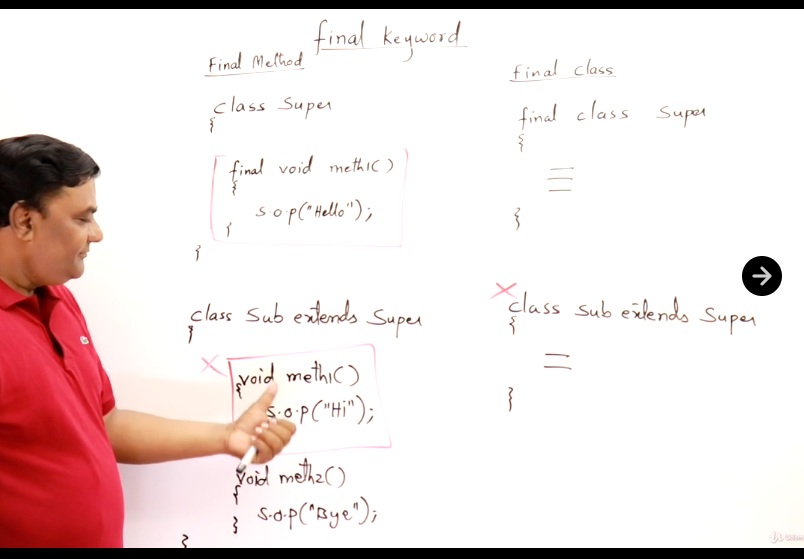 final keyword
Final Method
class Super
{
final void meth1()
{
s.o.p("Hello");
}
}
class Sub extends Super
{
void meth1()
{
s.o.p("Hi");
void meth2()
{
s.o.p("Bye");
}
}
Final class
final class Super
{
}
class Sub extends Super
{
}